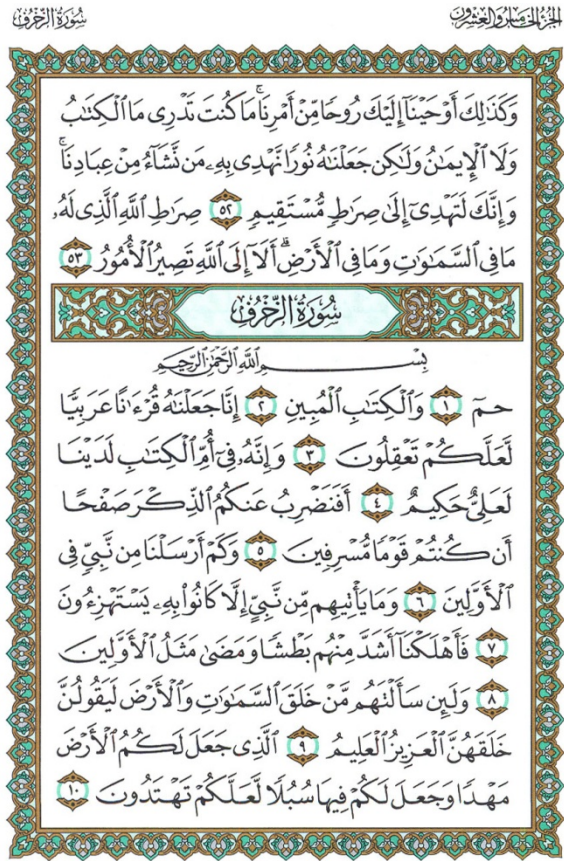 الجزء الخامس والعشرون
سُورَةُ الزُّخْرُفِ
وَكَذَٰلِكَ أَوْحَيْنَآ إِلَيْكَ رُوحًا مِّنْ أَمْرِنَا ۚ مَا كُنتَ تَدْرِى مَا ٱلْكِتَٰبُ
وَلَا ٱلْإِيمَٰنُ وَلَٰكِن جَعَلْنَٰهُ نُورًا نَّهْدِى بِهِۦ مَن نَّشَآءُ مِنْ عِبَادِنَا ۚ
وَإِنَّكَ لَتَهْدِىٓ إِلَىٰ صِرَٰطٍ مُّسْتَقِيمٍ ٥٢ صِرَٰطِ ٱللَّهِ ٱلَّذِى لَهُۥ
مَا فِى ٱلسَّمَٰوَٰتِ وَمَا فِى ٱلْأَرْضِ ۗ أَلَآ إِلَى ٱللَّهِ تَصِيرُ ٱلْأُمُورُ ٥٣
سُورَةُ الزُّخْرُفِ
بِسْمِ ٱللَّهِ ٱلرَّحْمَٰنِ ٱلرَّحِيمِ
حمٓ ١ وَٱلْكِتَٰبِ ٱلْمُبِينِ ٢ إِنَّا جَعَلْنَٰهُ قُرْءَٰنًا عَرَبِيًّا
لَّعَلَّكُمْ تَعْقِلُونَ ٣ وَإِنَّهُۥ فِىٓ أُمِّ ٱلْكِتَٰبِ لَدَيْنَا
لَعَلِىٌّ حَكِيمٌ ٤ أَفَنَضْرِبُ عَنكُمُ ٱلذِّكْرَ صَفْحًا
أَن كُنتُمْ قَوْمًا مُّسْرِفِينَ ٥ وَكَمْ أَرْسَلْنَا مِن نَّبِىٍّ فِى
ٱلْأَوَّلِينَ ٦ وَمَا يَأْتِيهِم مِّن نَّبِىٍّ إِلَّا كَانُوا۟ بِهِۦ يَسْتَهْزِءُونَ
٧ فَأَهْلَكْنَآ أَشَدَّ مِنْهُم بَطْشًا وَمَضَىٰ مَثَلُ ٱلْأَوَّلِينَ
٨ وَلَئِن سَأَلْتَهُم مَّنْ خَلَقَ ٱلسَّمَٰوَٰتِ وَٱلْأَرْضَ لَيَقُولُنَّ
خَلَقَهُنَّ ٱلْعَزِيزُ ٱلْعَلِيمُ ٩ ٱلَّذِى جَعَلَ لَكُمُ ٱلْأَرْضَ
مَهْدًا وَجَعَلَ لَكُمْ فِيهَا سُبُلًا لَّعَلَّكُمْ تَهْتَدُونَ ١٠